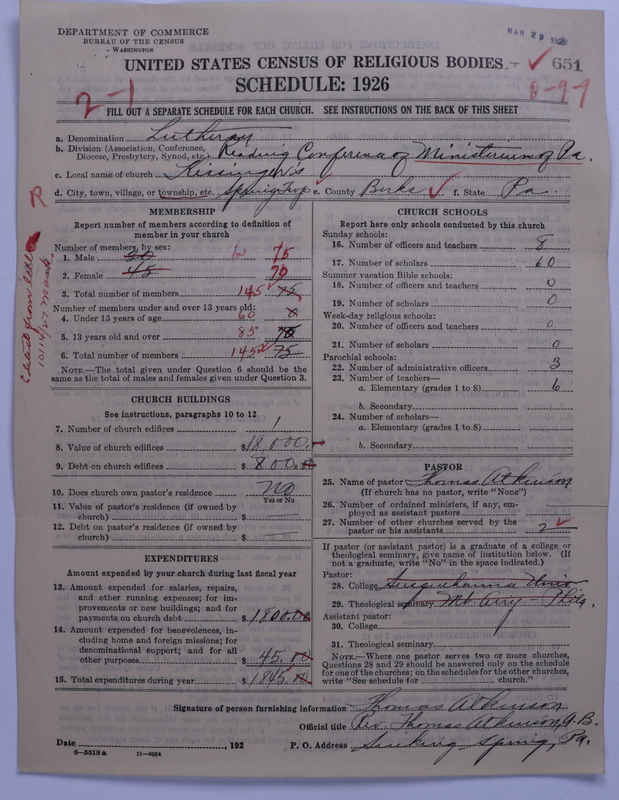 DEPARTMENT OF COMMERCE
BUREAU OF THE CENSUS
WASHINGTON
MAR 29 192
UNITED STATES CENSUS OF RELIGIOUS BODIES
651
SCHEDULE: 1926
2-1
FILL OUT A SEPARATE SCHEDULE FOR EACH CHURCH. SEE INSTRUCTIONS ON THE BACK OF THIS SHEET
a. Denomination Lutheran
b. Division (Association, Conference, Diocese, Presbytery, Synod, etc.) Reading Conference of Ministerium of Pa.
c. Local name of church Kissinger's
d. City, town, village, or township, etc. Spring Twp e. County Berks f. State Pa.
MEMBERSHIP
Report number of members according to definition of
member in your church
Number of members, by sex:
1. Male 30 75
2. Female 45 70
3. Total number of members 145 75
Number of members under and over 13 years old:
4. Under 13 years of age 60 0
5. 13 years old and over 85 75
6. Total number of members 145 75
NOTE.—The total given under Question 6 should be
same as the total of males and females given under Question 3.
CHURCH BUILDINGS
See instructions, paragraphs 10 to 12
7. Number of church edifices 1
8. Value of church edifices $18,000.
9. Debt on church edifices $800.00
10. Does church own pastor's residence No
Yes or No
11. Value of pastor's residence (if owned by
church) $
12. Debt on pastor's residence (if owned by
church) $
EXPENDITURES
Amount expended by your church during last fiscal year
13. Amount expended for salaries, repairs,
and other running expenses; for im-
provements or new buildings; and for
payments on church debt $1800.00
14. Amount expended for benevolences, in-
cluding home and foreign missions; for
denominational support; and for all
other purposes $45.00
15. Total expenditures during year $1845.00
CHURCH SCHOOLS
Report here only schools conducted by this church
Sunday schools:
16. Number of officers and teachers 8
17. Number of scholars 60
Summer vacation Bible schools:
18. Number of officers and teachers 0
19. Number of scholars 0
Week-day religious schools:
20. Number of officers and teachers 0
21. Number of scholars 0
Parochial schools:
22. Number of administrative officers 3
23. Number of teachers—
a. Elementary (grades 1 to 8) 6
b. Secondary
24. Number of scholars—
a. Elementary (grades 1 to 8)
b. Secondary
PASTOR
25. Name of pastor Thomas Atkinson
(If church has no pastor, write "None")
26. Number of ordained ministers, if any, em-
ployed as assistant pastors
27. Number of other churches served by the
pastor or his assistants 2
If pastor (or assistant pastor) is a graduate of a college or
theological seminary, give name of institution below. (If
not a graduate, write "No" in the space indicated.)
Pastor:
28. College Susquehanna Univ
29. Theological seminary Mt Airy Phila.
Assistant pastor:
30. College
31. Theological seminary
NOTE.—Where one pastor serves two or more churches,
Questions 28 and 29 should be answered only on the schedule
for one of the churches; on the schedules for the other churches,
write "See schedule for church."
Signature of person furnishing information Thomas Atkinson
Official title Rev. Thomas Atkinson, A.B.
Date , 192 P. O. Address Sinking Spring, Pa.
8—5518 a 11—9064